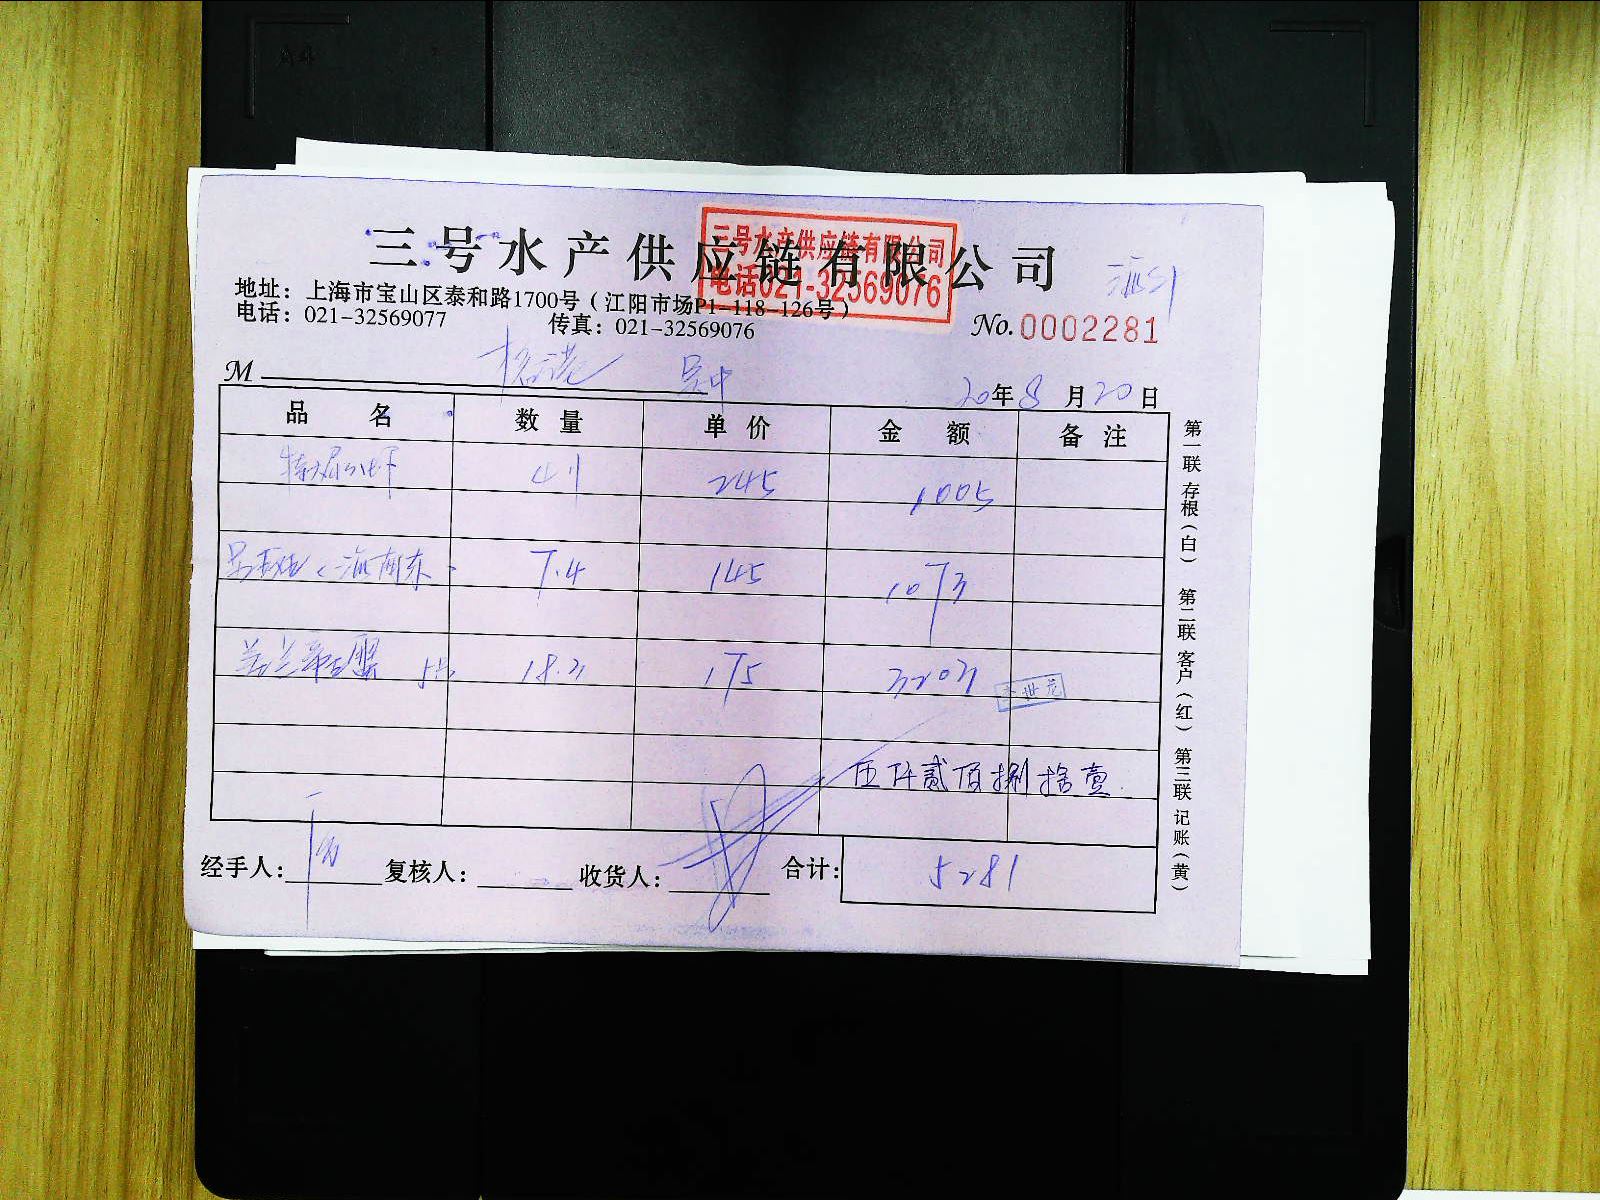 三号水产供应链有限公司
三号水产供应链有限公司
电话021-32569076
地址：上海市宝山区泰和路1700号（江阳市场P1-118-126号）
电话：021-32569077 传真：021-32569076
No.0002281
M 吴中 20年8月20日
品名 数量 单价 金额 备注
41 245 1005
7.4 145 1073
18.3 175 3203
伍仟贰佰捌拾壹
经手人： 复核人： 收货人： 合计： 5281
第一联 存根（白） 第二联 客户（红） 第三联 记账（黄）
A4